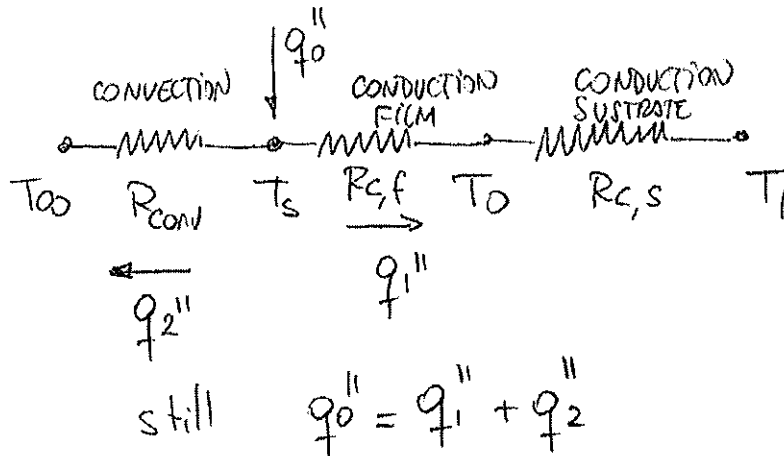 q₀''
CONVECTION CONDUCTION CONDUCTION
FILM SUSTRATE
T∞ Rconv Ts Rc,f T0 Rc,s T
q₂'' q₁''
still q₀'' = q₁'' + q₂''